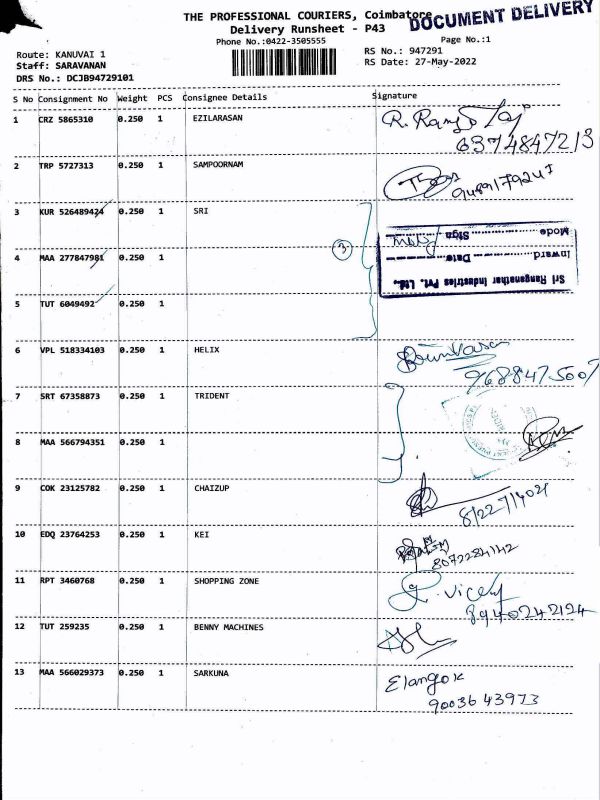 THE PROFESSIONAL COURIERS, Coimbatore
DOCUMENT DELIVERY
Delivery Runsheet - P43
Phone No.:0422-3505555
Page No.:1
Route: KANUVAI 1
RS No.: 947291
Staff: SARAVANAN
RS Date: 27-May-2022
DRS No.: DCJB94729101
S No Consignment No Weight PCS Consignee Details Signature
1 CRZ 5865310 0.250 1 EZILARASAN R.
6374847213
2 TRP 5727313 0.250 1 SAMPOORNAM
3 KUR 526489424 0.250 1 SRI
Mode Sign
4 MAA 277847981 0.250 1 3
Inward Date
Sri Ranganathar Industries Pvt. Ltd.,
5 TUT 6049492 0.250 1
6 VPL 518334103 0.250 1 HELIX
9688475007
7 SRT 67358873 0.250 1 TRIDENT
8 MAA 566794351 0.250 1
9 COK 23125782 0.250 1 CHAIZUP
10 EDQ 23764253 0.250 1 KEI
11 RPT 3460768 0.250 1 SHOPPING ZONE
8940242124
12 TUT 259235 0.250 1 BENNY MACHINES
13 MAA 566029373 0.250 1 SARKUNA
9003643973